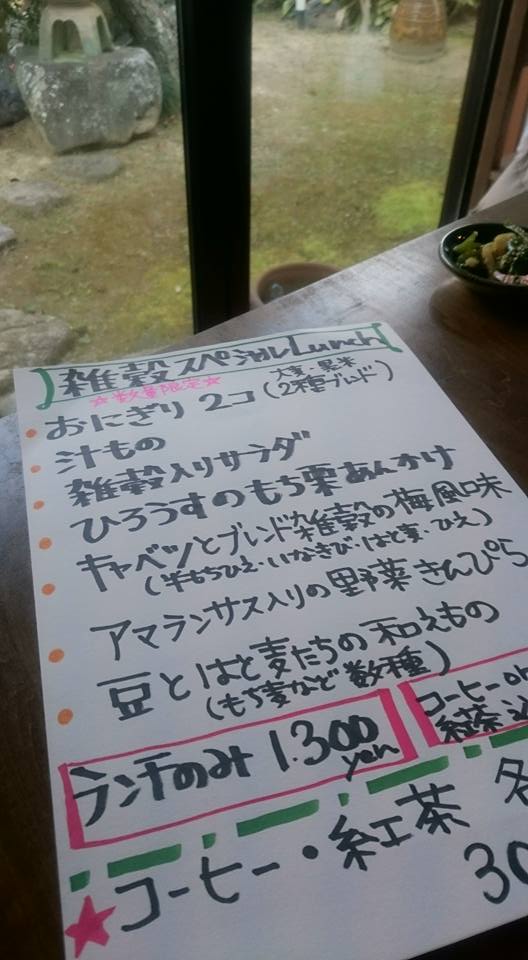 雑穀スペシャルLunch
☆数量限定☆
おにぎり 2コ(大麦・黒米 2種ブレンド)
汁もの
雑穀入りサラダ
ひろうすのもち粟あんかけ
キャベツとブレンド雑穀の梅風味
(半もちひえ・いなきび・はと麦・ひえ)
アマランサス入りの野菜きんぴら
豆とはと麦たちの和えもの
(もち麦など数種)
ランチのみ 1.300 yen
コーヒー or
紅茶
★コーヒー・紅茶 各
30